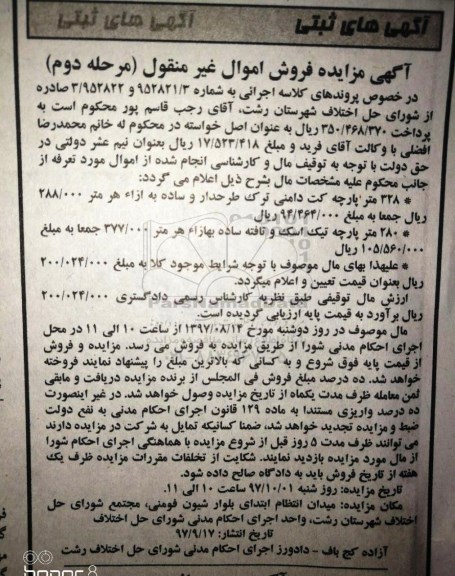 آگهی های ثبتی
آگهی های ثبتی
آگهی مزایده فروش اموال غیر منقول (مرحله دوم)
در خصوص پروندهای کلاسه اجرائی به شماره ۹۵۲۸۲۱/۳ و ۳/۹۵۲۸۲۲ صادره
از شورای حل اختلاف شهرستان رشت، آقای رجب قاسم پور محکوم است به
پرداخت ۳۵۰/۴۶۸/۳۷۰ ریال به عنوان اصل خواسته در محکوم له خانم محمدرضا
افضلی با وکالت آقای فرید و مبلغ ۱۷/۵۲۳/۴۱۸ ریال بعنوان نیم عشر دولتی در
حق دولت با توجه به توقیف مال و کارشناسی انجام شده از اموال مورد تعرفه از
جانب محکوم علیه مشخصات مال بشرح ذیل اعلام می گردد:
* ۳۲۸ متر پارچه کت دامنی ترک طرحدار و ساده به ازاء هر متر ۲۸۸/۰۰۰
ریال جمعا به مبلغ ۹۴/۴۶۴/۰۰۰ ریال
* ۲۸۰ متر پارچه تیک اسک و تافته ساده بهازاء هر متر ۳۷۷/۰۰۰ جمعا به مبلغ
۱۰۵/۵۶۰/۰۰۰ ریال
* علیهذا بهای مال موصوف با توجه شرایط موجود کلا به مبلغ ۲۰۰/۰۲۴/۰۰۰
ریال بعنوان قیمت تعیین و اعلام میگردد.
ارزش مال توقیفی طبق نظریه کارشناس رسمی دادگستری ۲۰۰/۰۲۴/۰۰۰
ریال برآورد به قیمت پایه ارزیابی گردیده است.
مال موصوف در روز دوشنبه مورخ ۱۳۹۷/۰۸/۱۴ از ساعت ۱۰ الی ۱۱ در محل
اجرای احکام مدنی شورا از طریق مزایده به فروش می رسد. مزایده و فروش
از قیمت پایه فوق شروع و به کسانی که بالاترین مبلغ را پیشنهاد نمایند فروخته
خواهد شد. ده درصد مبلغ فروش فی المجلس از برنده مزایده دریافت و مابقی
ثمن معامله ظرف مدت یکماه از تاریخ مزایده وصول خواهد شد. در غیر اینصورت
ده درصد واریزی مستندا به ماده ۱۲۹ قانون اجرای احکام مدنی به نفع دولت
ضبط و مزایده تجدید خواهد شد، ضمنا کسانیکه تمایل به شرکت در مزایده دارند
می توانند ظرف مدت ۵ روز قبل از شروع مزایده با هماهنگی اجرای احکام شورا
از مال مورد مزایده بازدید نمایند. شکایت از تخلفات مقررات مزایده ظرف یک
هفته از تاریخ فروش باید به دادگاه صالح داده شود.
تاریخ مزایده: روز شنبه ۹۷/۱۰/۰۱ ساعت ۱۰ الی ۱۱.
مکان مزایده: میدان انتظام ابتدای بلوار شیون فومنی، مجتمع شورای حل
اختلاف شهرستان رشت، واحد اجرای احکام مدنی شورای حل اختلاف
تاریخ انتشار: ۹۷/۹/۱۷
آزاده کج باف - دادورز اجرای احکام مدنی شورای حل اختلاف رشت
honor 8